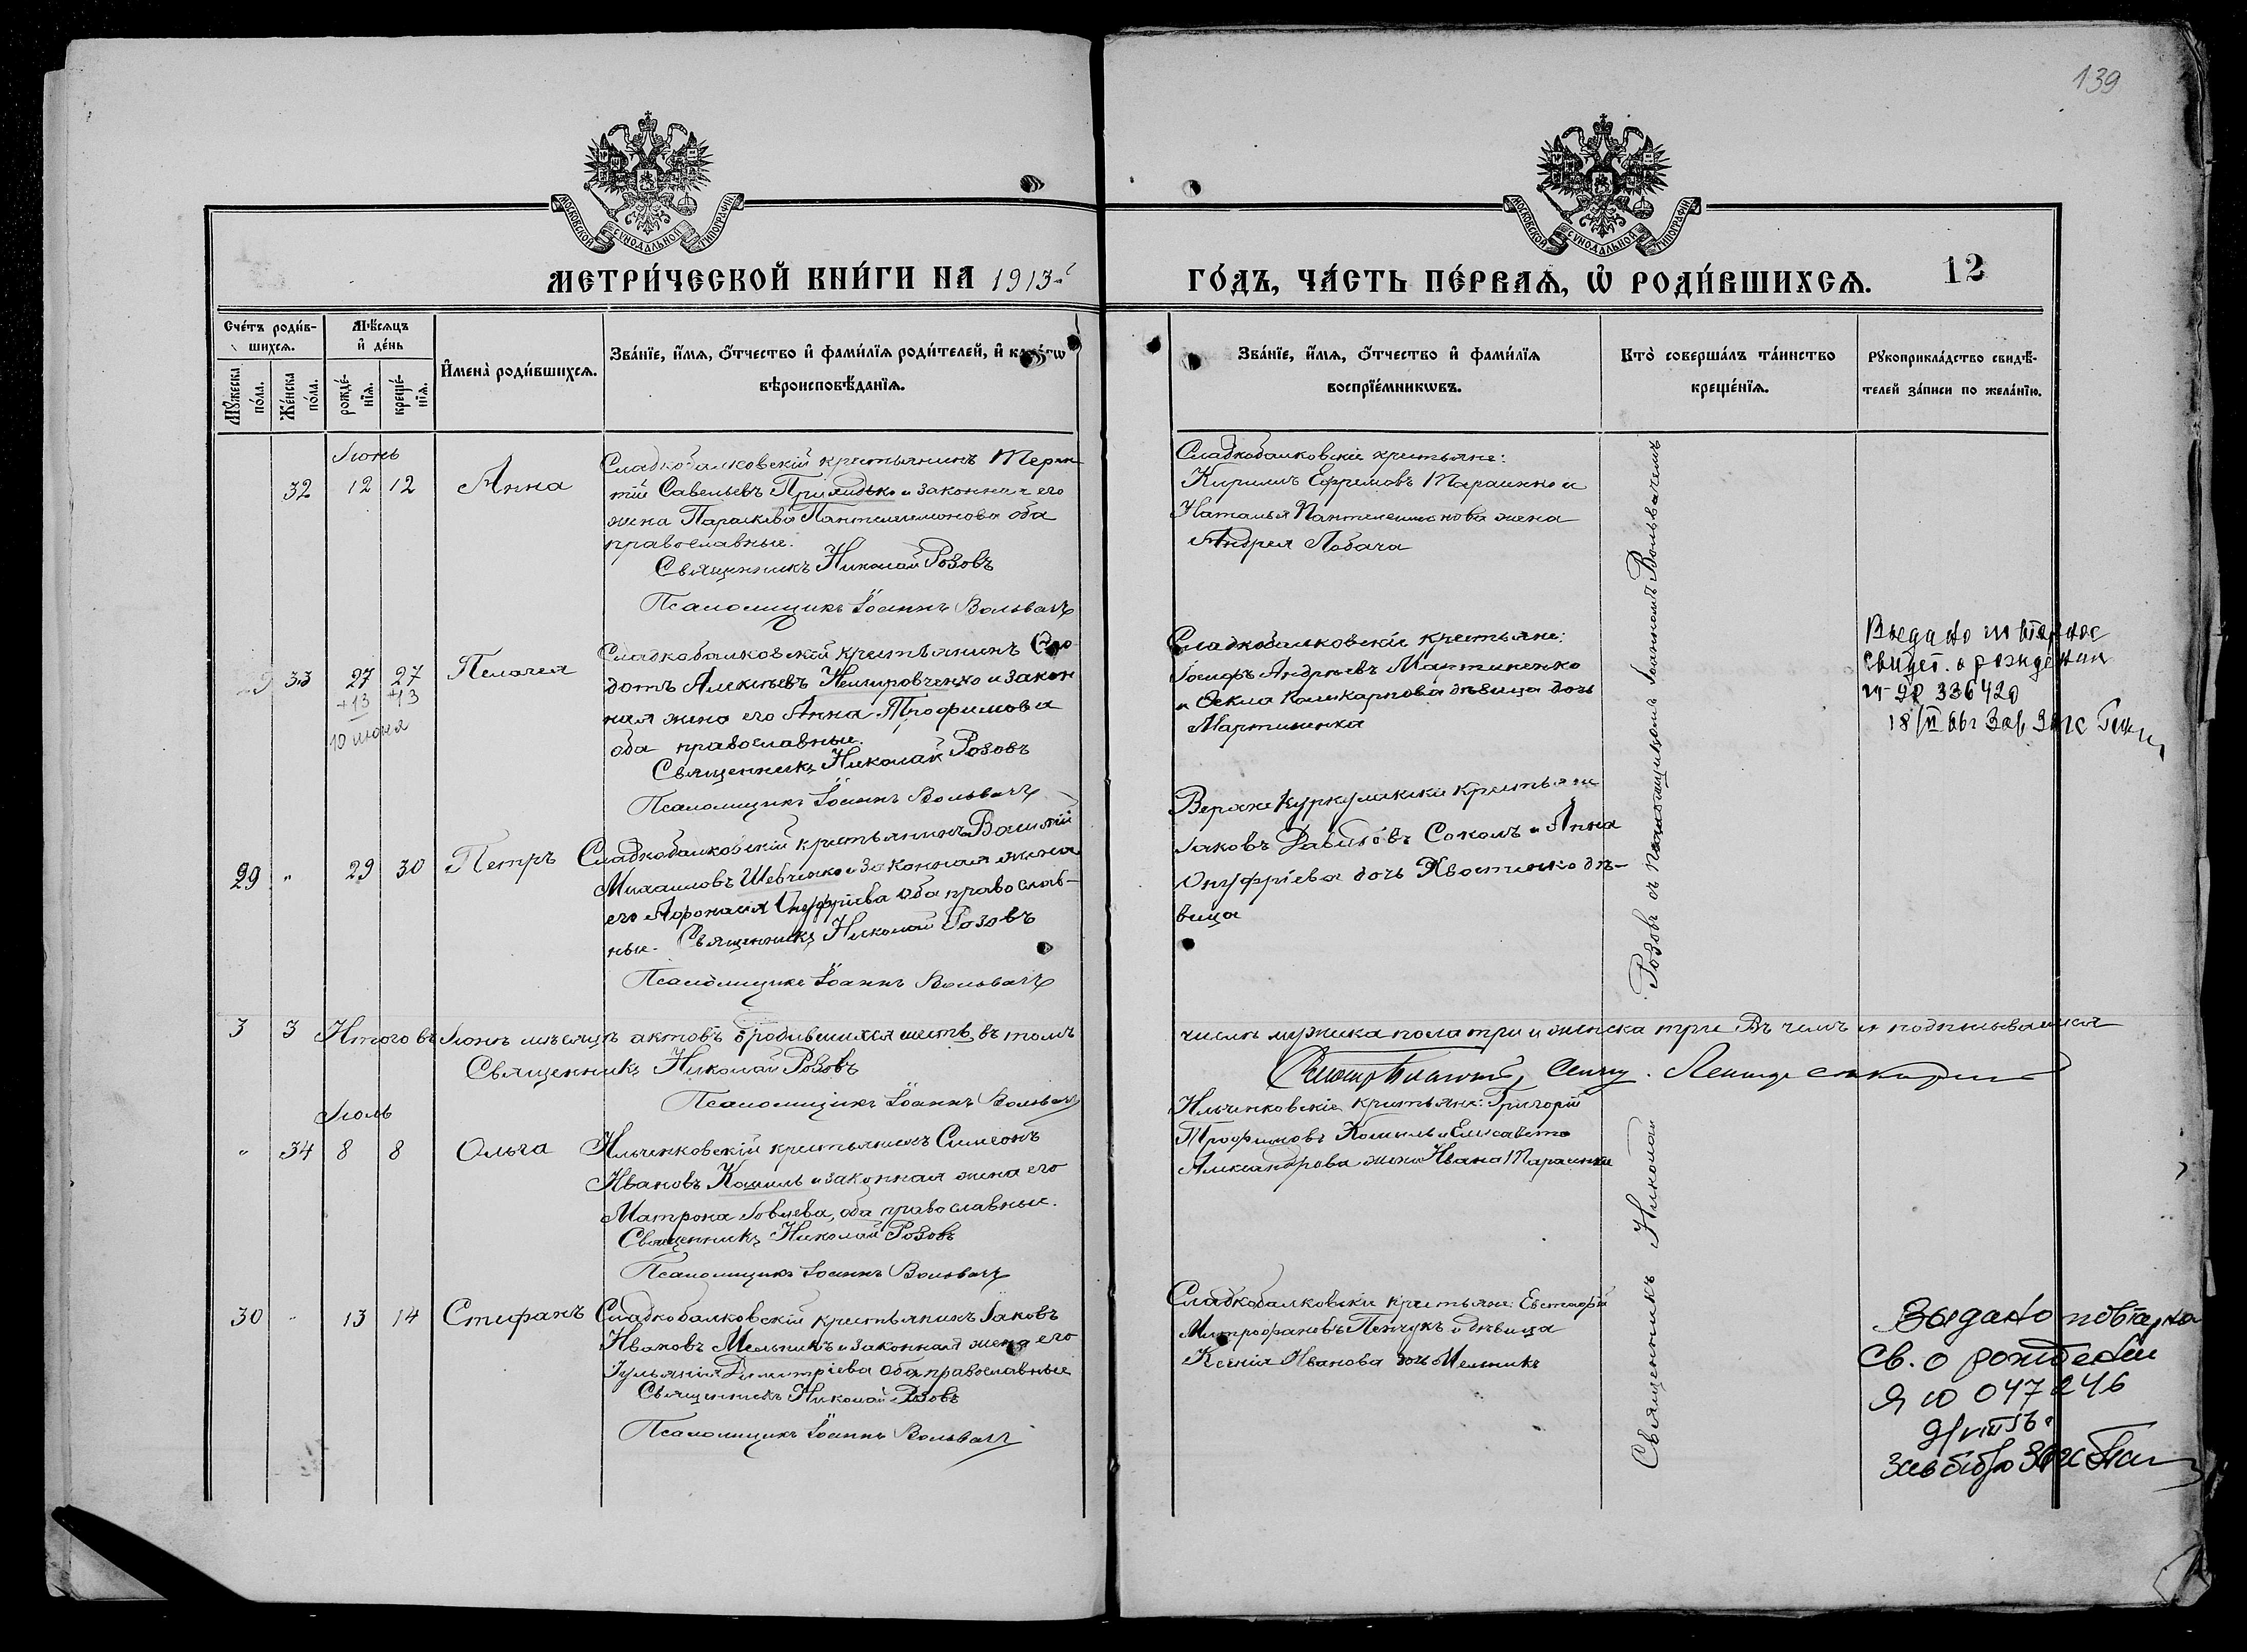 139
МОСКОВСКОЙ СУНОДАЛЬНОЙ ТИПОГРАФІИ
МОСКОВСКОЙ СУНОДАЛЬНОЙ ТИПОГРАФІИ
МЕТРИ́ЧЕСКОЙ КНИ́ГИ НА 1913-й
ГО́ДЪ, ЧА́СТЬ ПЕ́РВАѦ, Ѡ҆ РОДИ́ВШИХСѦ. 12
Сче́тъ роди́в-
шихсѧ.
Мꙋ́жеска по́ла.
Же́нска по́ла.
Мѣ́сѧцъ и҆ де́нь
рожде́-нїѧ.
креще́-нїѧ.
И҆мена̀ роди́вшихсѧ.
Зва́нїе, и҆́мѧ, ѻ҆́тчество и҆ фами́лїѧ роди́телей, и҆ како́гѡ
вѣроисповѣ́данїѧ.
Зва́нїе, и҆́мѧ, ѻ҆́тчество и҆ фами́лїѧ
воспрїе́мникѡвъ.
Кто̀ соверша́лъ та́инство
креще́нїѧ.
Рꙋкоприкла́дство свидѣ́-
телей за́писи по жела́нїю.
Іюнь
32 12 12 Анна
Сладкобалковскій крестьянинъ Терен
тій Савельевъ Прилидько и законная его
жена Параскева Пантелеимонова оба
православные.
Священникъ Николай Розовъ
Псаломщикъ Іоаннъ Вольвачъ
Сладкобалковскіе крестьяне:
Кириллъ Ефремовъ Тараненко и
Наталья Пантелеимонова жена
Андрея Лобача
33 27 27 Пелагея
+13 +13
10 июля
Сладкобалковскій крестьянинъ Ѳео
дотъ Алексѣевъ Немировченко и закон
ная жена его Анна Трофимова
оба православные.
Священникъ Николай Розовъ
Псаломщикъ Іоаннъ Вольвачъ
Сладкобалковскіе крестьяне:
Іосифъ Андреевъ Мартиненко
и Ѳекла Поликарпова дѣвица дочь
Мартиненка
Выдано повторное
свидет. о рождении
336420
29 " 29 30 Петръ
Сладкобалковскій крестьянинъ Василій
Михаиловъ Шевченко и законная жена
его Афонасія Онуфріева оба православ-
ные. Священникъ Николай Розовъ
Псаломщикъ Іоаннъ Вольвачъ
крестьяне
Іаковъ Давидовъ Соколъ и Анна
Онуфріева дочь Хвостенко дѣ-
вица
3 3 Итого въ Іюнѣ мѣсяцѣ актовъ о родившихся шесть въ томъ
числѣ мужска пола три и женска три Въ чемъ и подписываемся
Священникъ Николай Розовъ
Псаломщикъ Іоаннъ Вольвачъ
Іюль
" 34 8 8 Ольга
Ильченковскій крестьянинъ Симеонъ
Ивановъ Кошиль и законная жена его
Матрона Іовлева, оба православные.
Священникъ Николай Розовъ
Псаломщикъ Іоаннъ Вольвачъ
Ильченковскіе крестьяне: Григорій
Трофимовъ Кошиль и Елисавета
Александрова жена Ивана Тараненка
30 " 13 14 Стефанъ
Сладкобалковскій крестьянинъ Іаковъ
Ивановъ Мельникъ и законная жена его
Іуліанія Димитріева оба православные
Священникъ Николай Розовъ
Псаломщикъ Іоаннъ Вольвачъ
Сладкобалковскіе крестьяне: Евстафій
Митрофановъ Пенчукъ и дѣвица
Ксенія Иванова дочь Мельникъ
Священникъ Николай Розовъ съ псаломщикомъ Іоанномъ Вольвачемъ
Выдано повторно
св. о рождении
047246